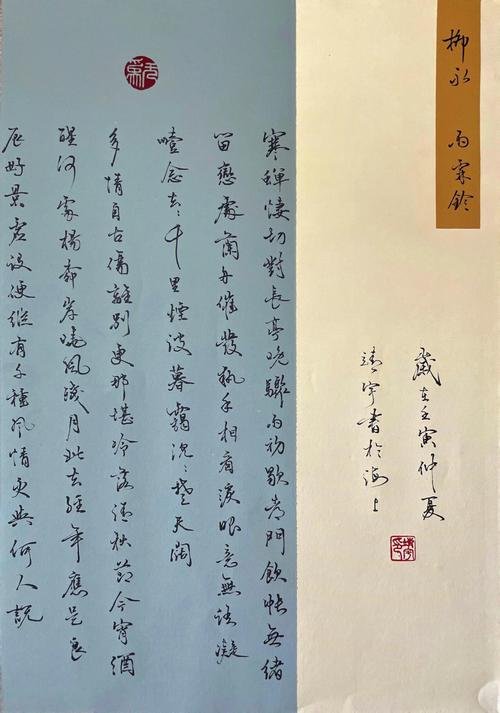 柳永 雨霖鈴
歲在壬寅仲夏
宇書於海上
寒蟬淒切對長亭晚驟雨初歇都門飲帳無緒
留戀處蘭舟催發執手相看淚眼竟無語凝
噎念去〻千里煙波暮靄沈〻楚天闊
多情自古傷離別更那堪冷落清秋節今宵酒
醒何處楊柳岸曉風殘月此去經年應是良
辰好景虛設便縱有千種風情更與何人說